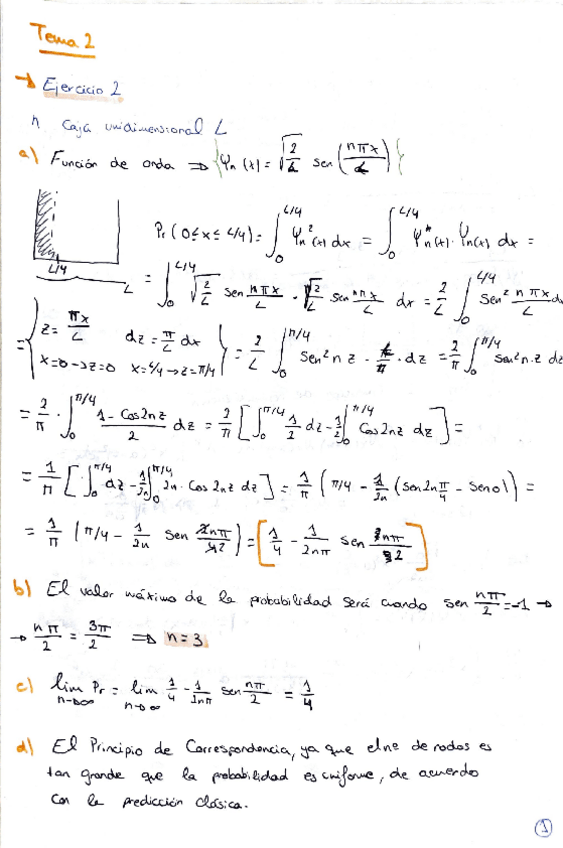 Tema 2
→ Ejercicio 2
n Caja unidimensional L
a) Función de onda ⇒ {Ψn (x) = √(2/L) sen (nπx/L)}
Pr (0 ≤ x ≤ L/4) = ∫₀^{L/4} Ψn²(x) dx = ∫₀^{L/4} Ψn*(x) · Ψn(x) dx =
L/4
L
= ∫₀^{L/4} √(2/L) sen nπx/L · √(2/L) sen nπx/L dx = 2/L ∫₀^{L/4} sen² nπx/L dx
= { z = πx/L dz = π/L dx x=0 → z=0 x=L/4 → z=π/4 } = 2/L ∫₀^{π/4} sen² nz · L/π · dz = 2/π ∫₀^{π/4} sen² n·z dz
= 2/π · ∫₀^{π/4} (1 - cos 2nz)/2 dz = 2/π [ ∫₀^{π/4} 1/2 dz - 1/2 ∫₀^{π/4} cos 2nz dz ] =
= 1/π [ ∫₀^{π/4} dz - 1/2n ∫₀^{π/4} 2n · cos 2nz dz ] = 1/π ( π/4 - 1/2n (sen 2n π/4 - sen 0) ) =
= 1/π ( π/4 - 1/2n sen nπ/2 ) = [ 1/4 - 1/2nπ sen nπ/2 ]
b) El valor máximo de la probabilidad será cuando sen nπ/2 = -1 →
→ nπ/2 = 3π/2 ⇒ n = 3
c) lim n→∞ Pr = lim n→∞ 1/4 - 1/2nπ sen nπ/2 = 1/4
d) El Principio de Correspondencia, ya que el nº de nodos es
tan grande que la probabilidad es uniforme, de acuerdo
con la predicción clásica.
1